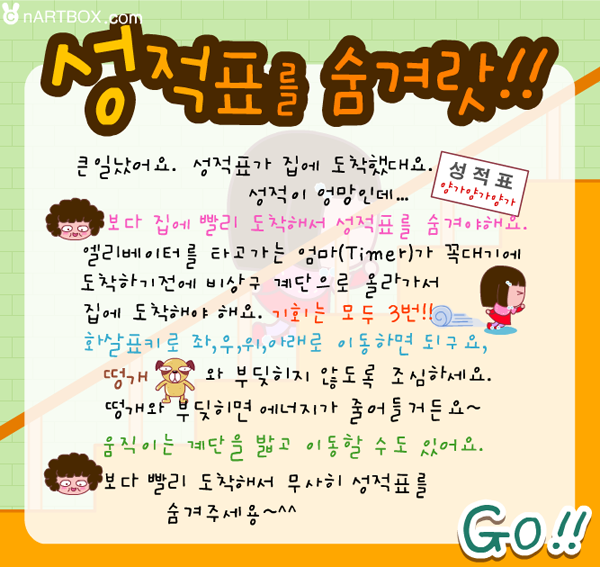 nARTBOX.com
성적표를 숨겨랏!!
큰일났어요. 성적표가 집에 도착했대요.
성적이 엉망인데...
성적표
양가양가양가
보다 집에 빨리 도착해서 성적표를 숨겨야해요.
엘리베이터를 타고가는 엄마(Timer)가 꼭대기에
도착하기전에 비상구 계단으로 올라가서
집에 도착해야 해요. 기회는 모두 3번!!
화살표키로 좌,우,위,아래로 이동하면 되구요,
떵개 와 부딪히지 않도록 조심하세요.
떵개와 부딪히면 에너지가 줄어들거든요~
움직이는 계단을 밟고 이동할 수도 있어요.
보다 빨리 도착해서 무사히 성적표를
숨겨주세용~^^
Go!!